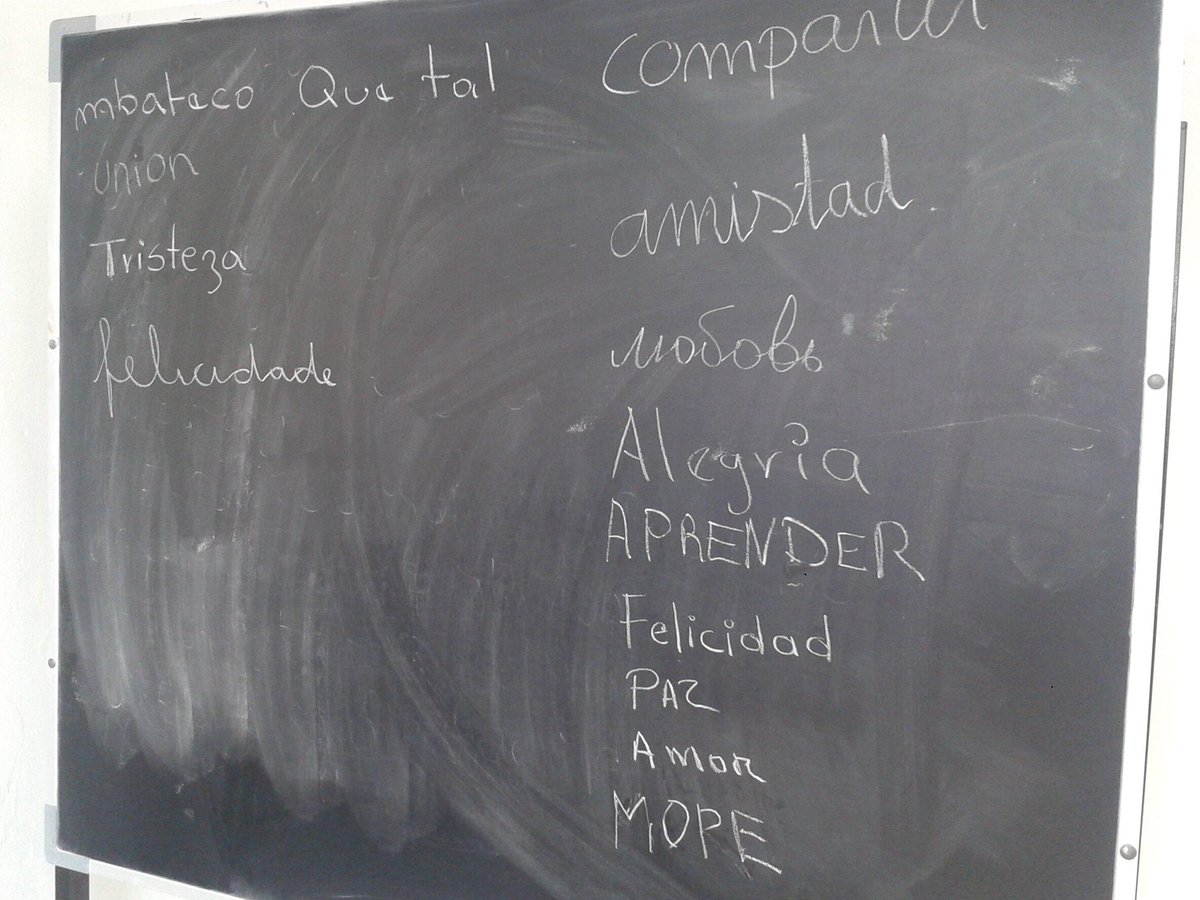 mbateco Que tal
union
Tristeza
felicidade
compartir
amistad.
любовь
Alegria
APRENDER
Felicidad
PAZ
Amor
МОРЕ